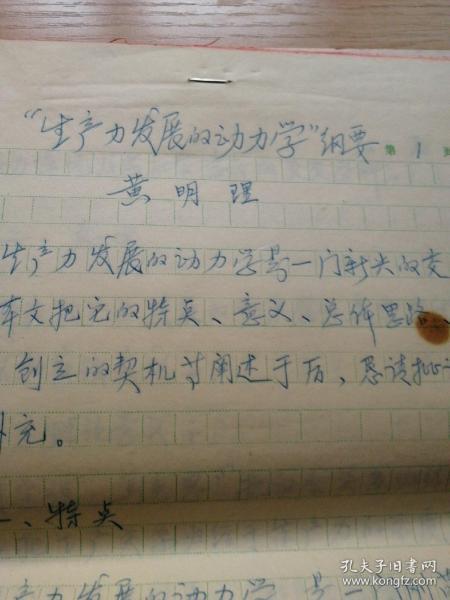 “生产力发展的动力学”纲要
第 1 页
黄明理
生产力发展的动力学是一门新兴的交
本文把它的特点、意义、总体思路、
创立的契机等阐述于后，恳请批评
补充。
一、特点
产力发展的动力学，是一门
孔夫子旧书网
book.kongfz.com